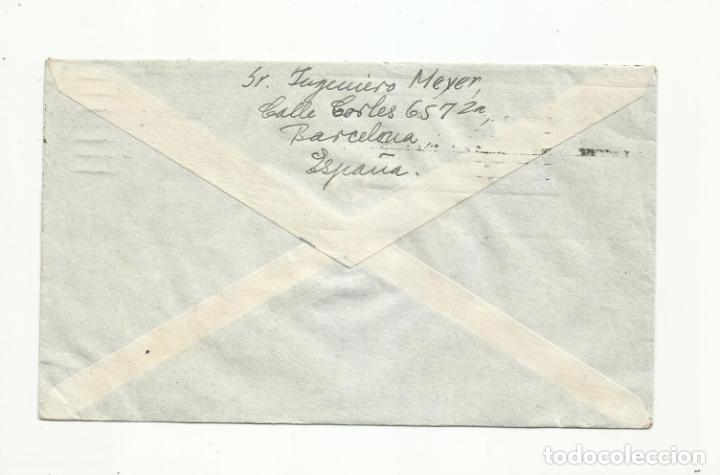 Sr. Ingeniero Meyer,
Calle Cortes 657 2a,
Barcelona,
España.
todocoleccion